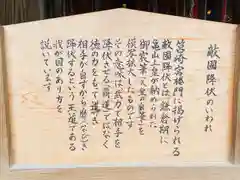 敵国降伏のいわれ
筥崎宮楼門に掲げられる
敵国降伏と は 鎌倉期に
亀山上皇が納められた
御宸筆(天皇の直筆)を
模写拡大したものです
その意味は武力で相手を
降伏させる(覇道)ではなく
徳の力をもって導き
相手が自ずから靡き
降伏するという王道である
我が国のあり方を
説いています